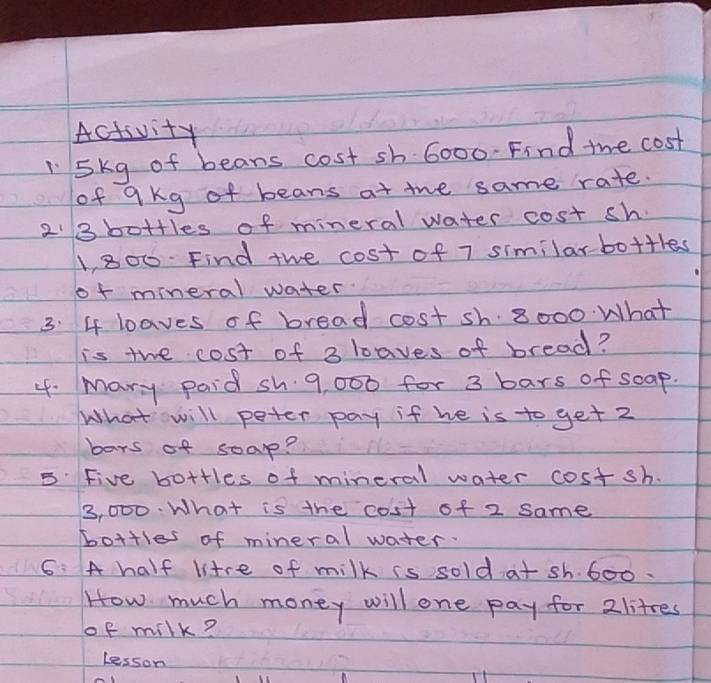 Activity
1. 5kg of beans cost sh. 6000. Find the cost
of 9kg of beans at the same rate.
2. 3 bottles of mineral water cost sh.
1,800. Find the cost of 7 similar bottles
of mineral water.
3. 4 loaves of bread cost sh. 8000. What
is the cost of 3 loaves of bread?
4. Mary paid sh. 9,000 for 3 bars of soap.
What will peter pay if he is to get 2
bars of soap?
5. Five bottles of mineral water cost sh.
3,000. What is the cost of 2 same
bottles of mineral water.
6. A half litre of milk is sold at sh. 600.
How much money will one pay for 2litres
of milk?
Lesson